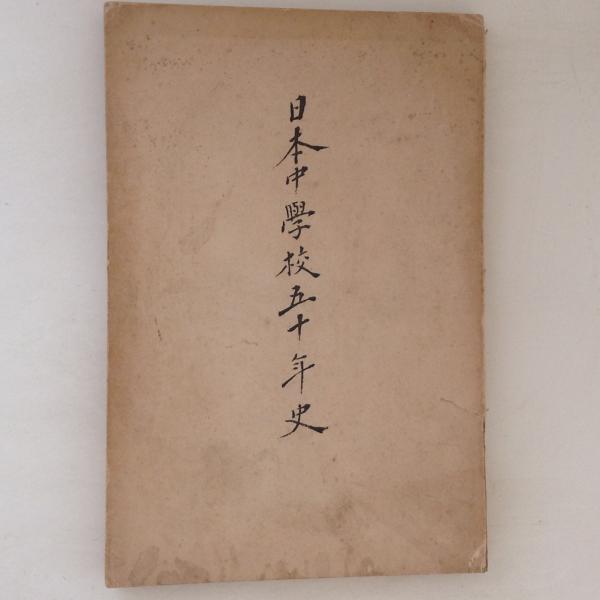 日本中學校五十年史